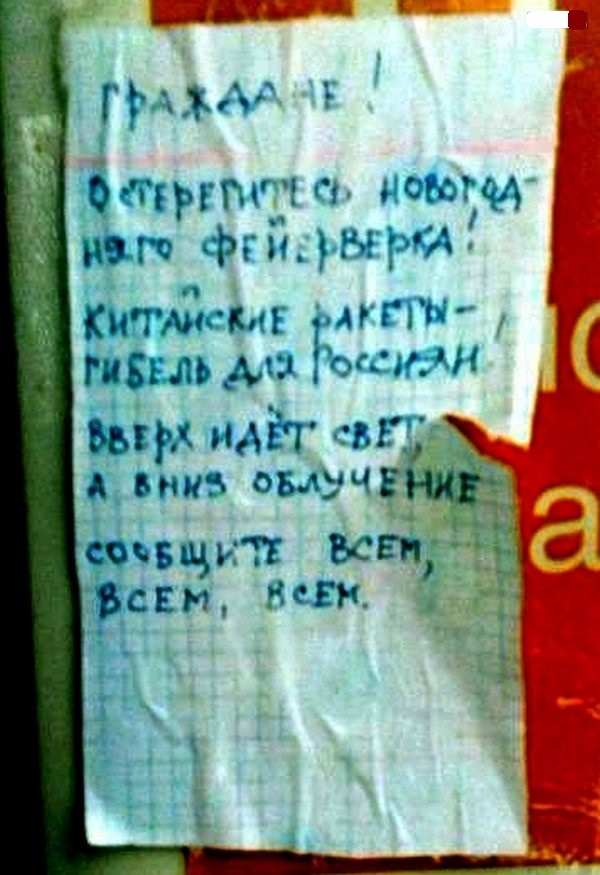 ГРАЖДАНЕ!
ОСТЕРЕГИТЕСЬ НОВОГОД-
НЯГО ФЕЙЕРВЕРКА!
КИТАЙСКИЕ РАКЕТЫ-
ГИБЕЛЬ ДЛЯ РОССИЯН!
ВВЕРХ ИДЁТ СВЕТ,
А ВНИЗ ОБЛУЧЕНИЕ
СООБЩИТЕ ВСЕМ,
ВСЕМ, ВСЕМ.
а